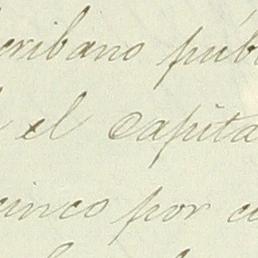 cribano púb
el capita
cinco por c